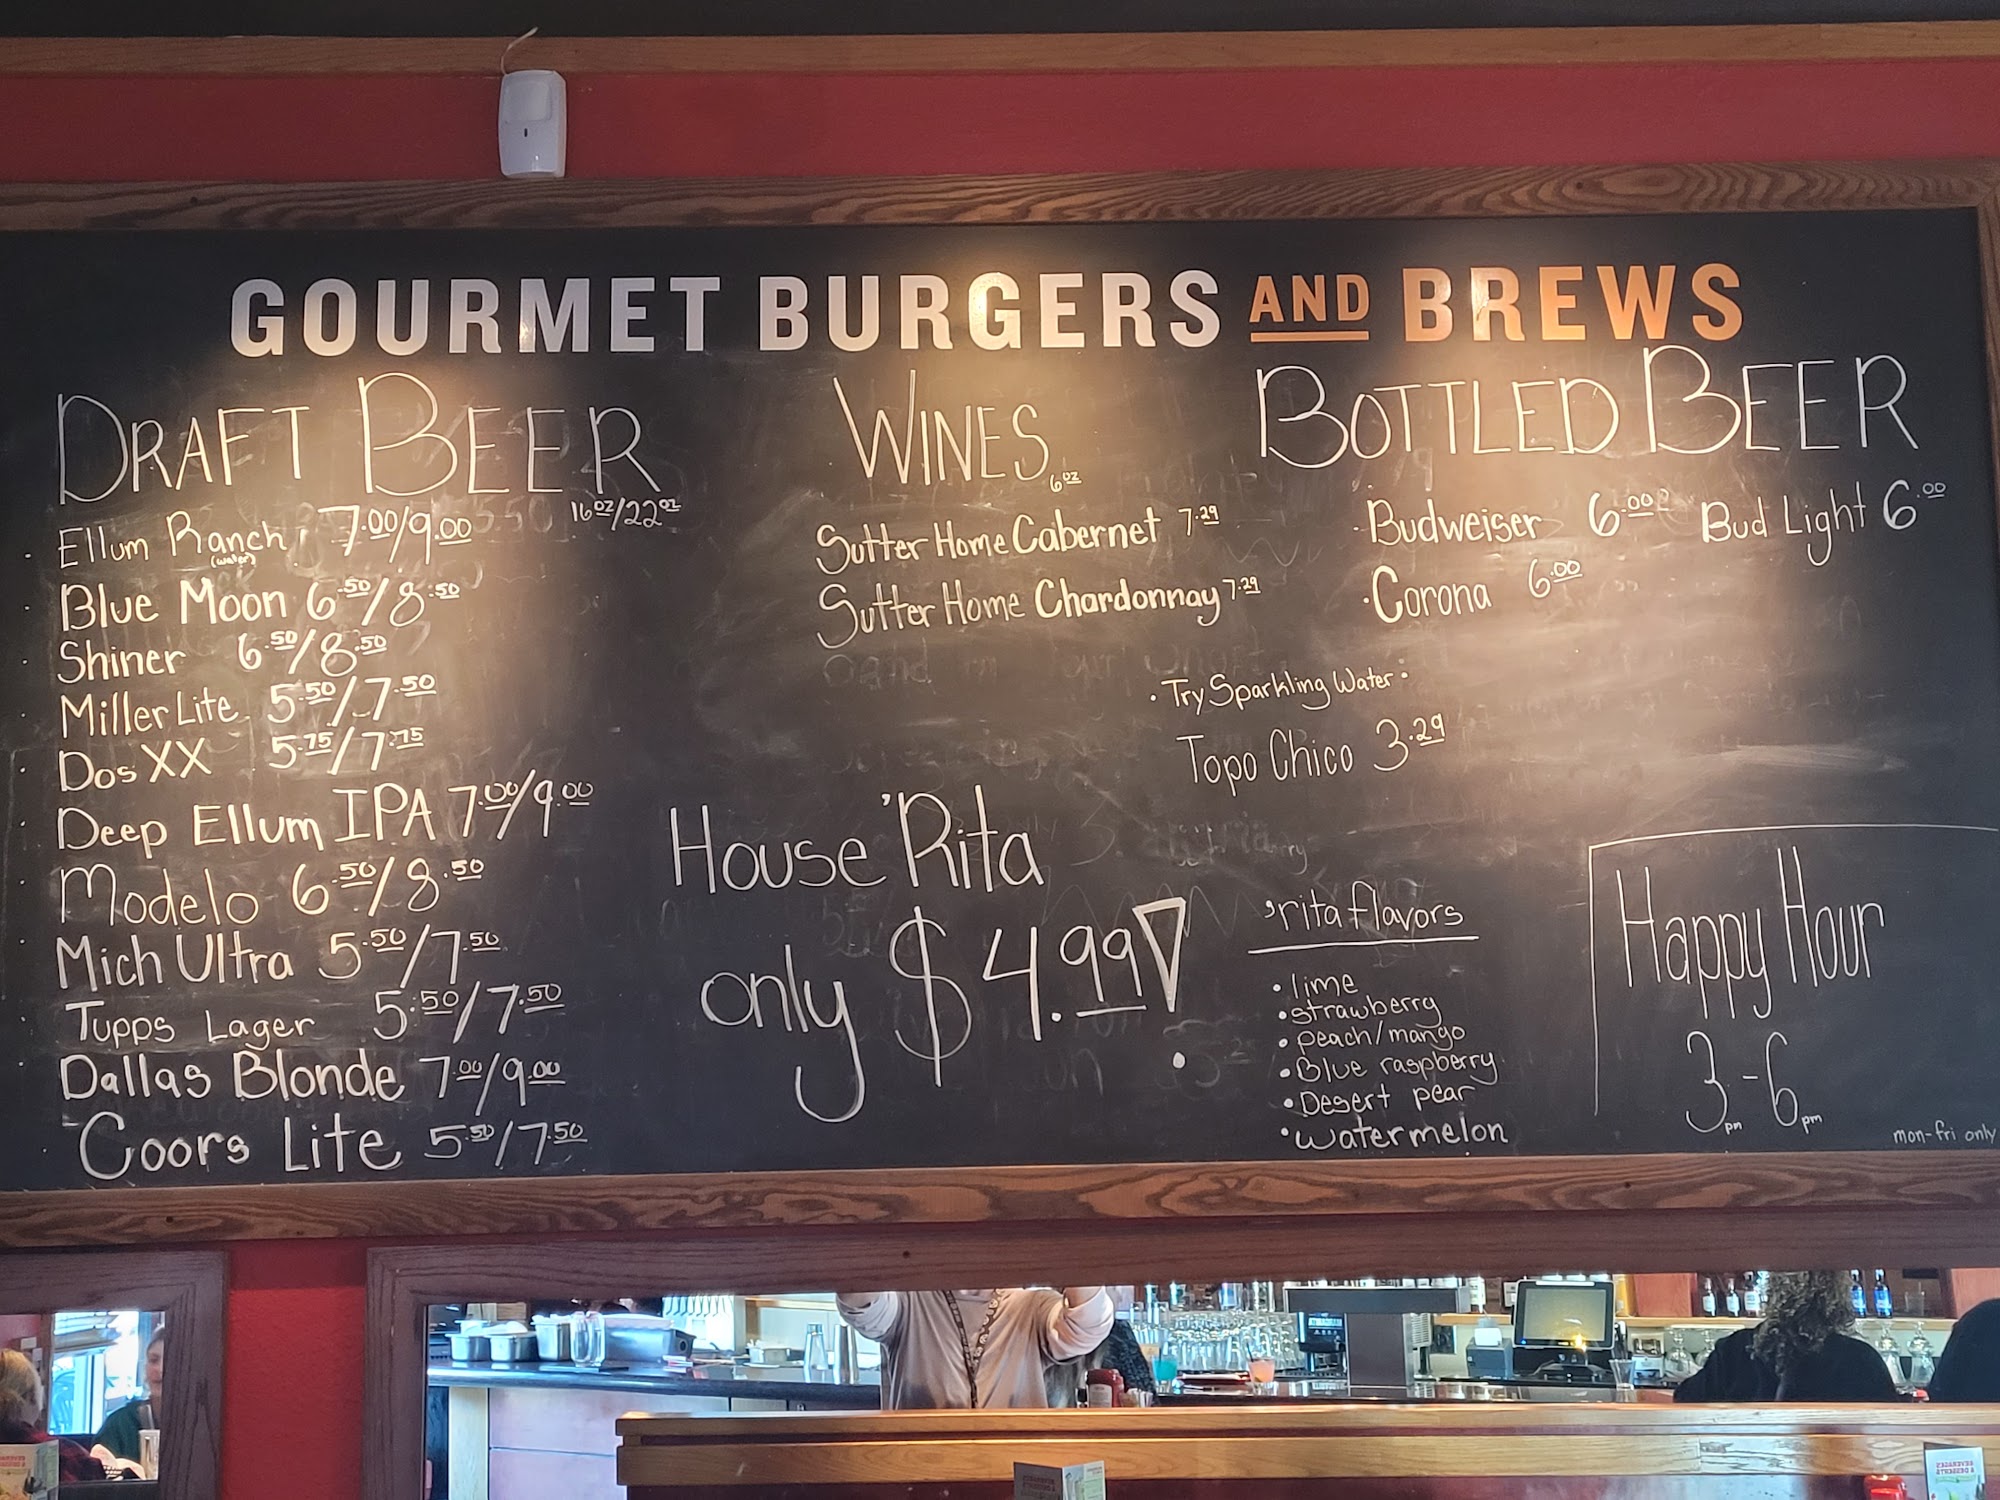 GOURMET BURGERS AND BREWS
DRAFT BEER
16oz/22oz
Ellum Ranch 7.00/9.00
(water)
Blue Moon 6.50/8.50
Shiner 6.50/8.50
Miller Lite 5.50/7.50
Dos XX 5.75/7.75
Deep Ellum IPA 7.00/9.00
Modelo 6.50/8.50
Mich Ultra 5.50/7.50
Tupps Lager 5.50/7.50
Dallas Blonde 7.00/9.00
Coors Lite 5.50/7.50
WINES 6oz
Sutter Home Cabernet 7.29
Sutter Home Chardonnay 7.29
BOTTLED BEER
· Budweiser 6.00 Bud Light 6.00
· Corona 6.00
· Try Sparkling Water ·
Topo Chico 3.29
House 'Rita
only $4.99!
'rita flavors
• lime
• strawberry
• peach/mango
• Blue raspberry
• Desert pear
• watermelon
Happy Hour
3pm - 6pm
mon-fri only